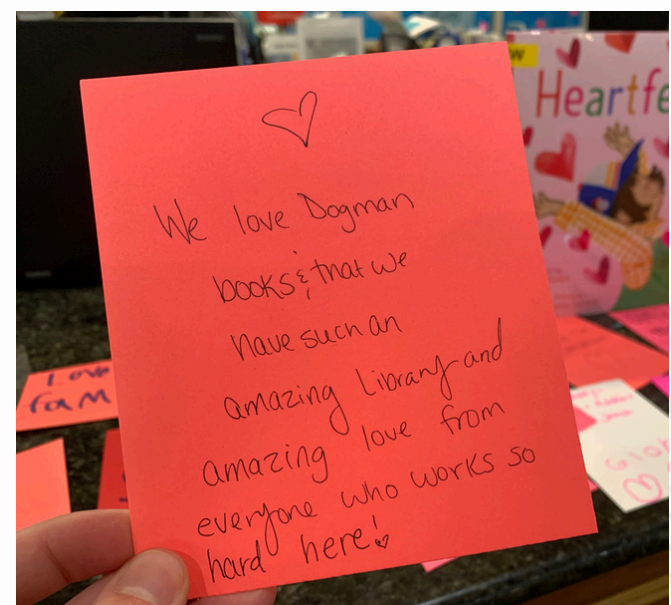 We love Dogman
books & that we
have such an
amazing Library and
amazing love from
everyone who works so
hard here!
W
Heartfe
Love
FOR M